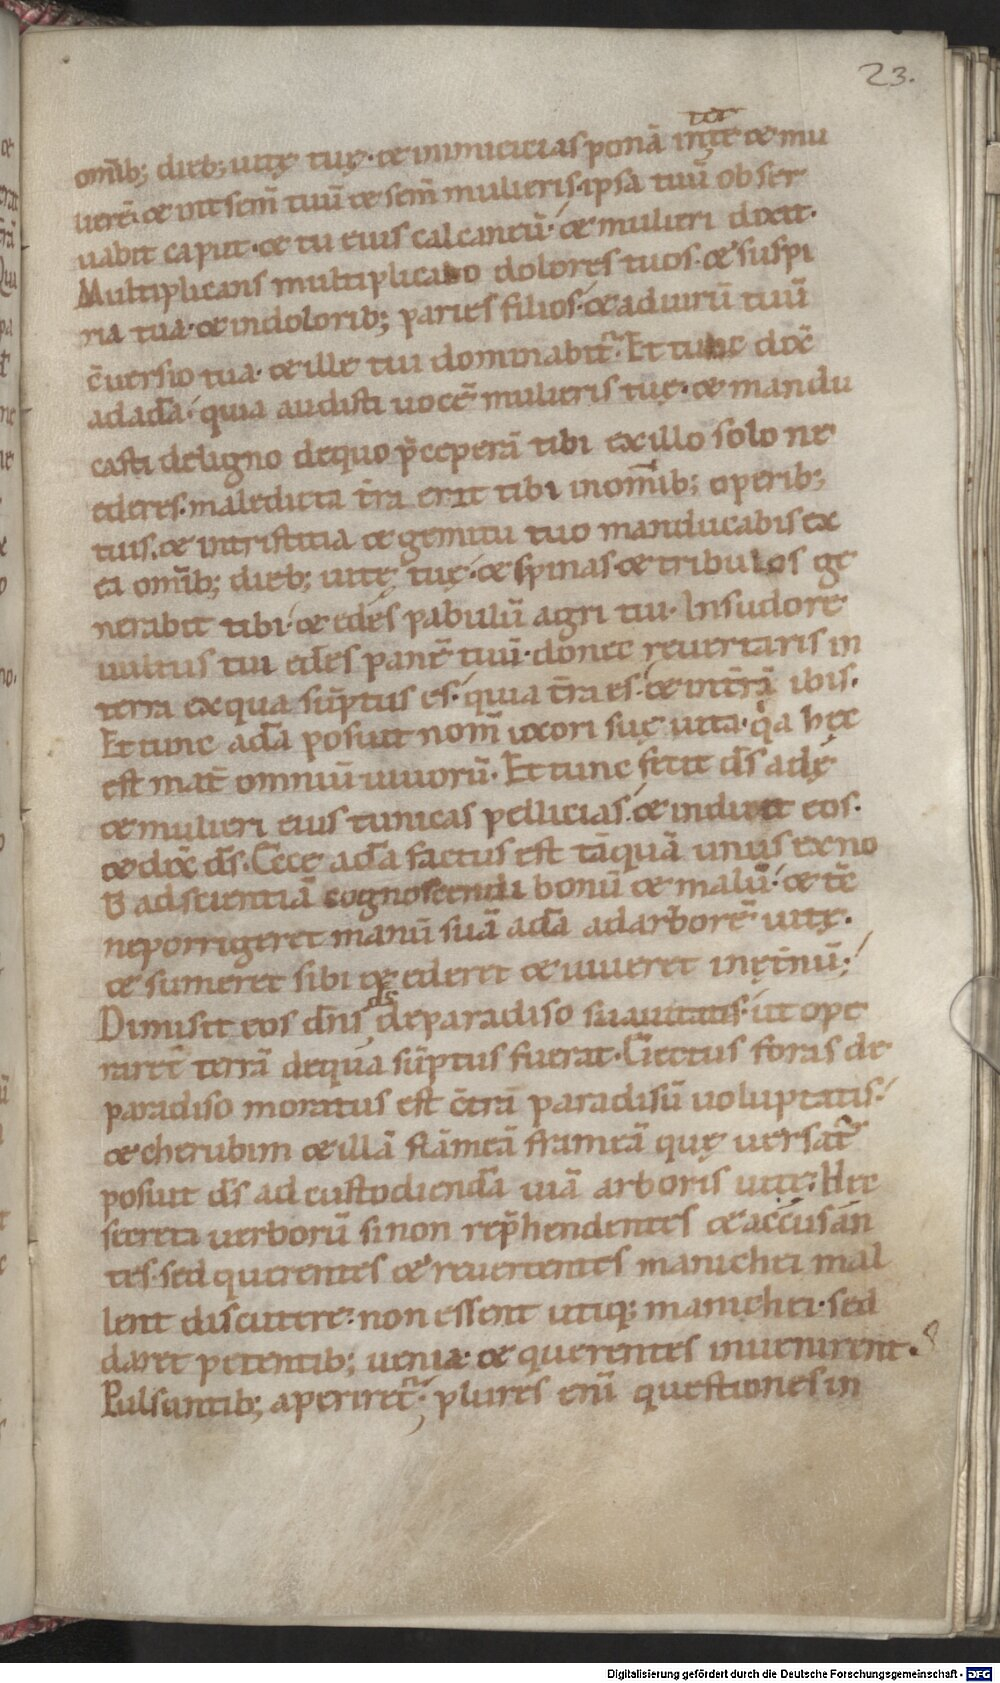 23.
ter
omīb; dieb; uitę tuę· & inimicicias ponā inte & mu
lierē· & int̄ sem̄ tuū & sem̄ mulieris· ipsa tuū obser
uabit caput· & tu eius calcaneū· & mulieri dixit·
Multiplicans multiplicabo dolores tuos· & suspi
ria tua· & indolorib; paries filios· & aduirū tuū
c̄uersio tua· & ille tui dominabit᷑· Et tunc dix̄
adadā· quia audisti uocē mulieris tuę· & mandu
casti deligno dequo p̄ceperā tibi exillo solo ne
ederes· maledicta t̄ra erit tibi inomīb; operib;
tuis· & intristitia & gemitu tuo manducabis ex
ea omīb; dieb; uitę tuę· & spinas & tribulos ge
nerabit tibi· & edes pabulū agri tui· Insudore
uultus tui edes panē tuū· donec reuertaris in
terra exqua sūptus es· quia t̄ra es· & int̄rā ibis·
Et tunc adā posuit nom̄ uxori suę uita· qa hęc
est mat̄ omniū uiuorū· Et tunc fecit ds̄ adę
& mulieri eius tunicas pellicias· & induit eos·
& dix̄ ds̄· Ecce adā factus est tāquā unus exno
b̄ adscientiā cognoscendi bonū & malū· & tc̄
neporrigeret manū suā adā adarborē uitę·
& sumeret sibi & ederet & uiueret inęt̄nū·
Dimisit eos dn̄s ds̄ deparadiso suauitatis· ut ope
raret᷑ terrā dequa sūptus fuerat· Eiectus foras de
paradiso moratus est c̄trā paradisū uoluptatis·
& cherubim & illā flāmeā frameā quę uersat᷑
posuit ds̄ ad custodiendā uiā arboris uitę· Hec
secreta uerborū sinon rep̄hendentes & accusan
tes· sed querentes & reuertentes manichei mal
lent discutere· non essent utiq; manichei· sed
daret petentib; uenia· & querentes inuenirent·
Pulsantib; aperiret᷑· plures enī questiones in
Digitalisierung gefördert durch die Deutsche Forschungsgemeinschaft · DFG